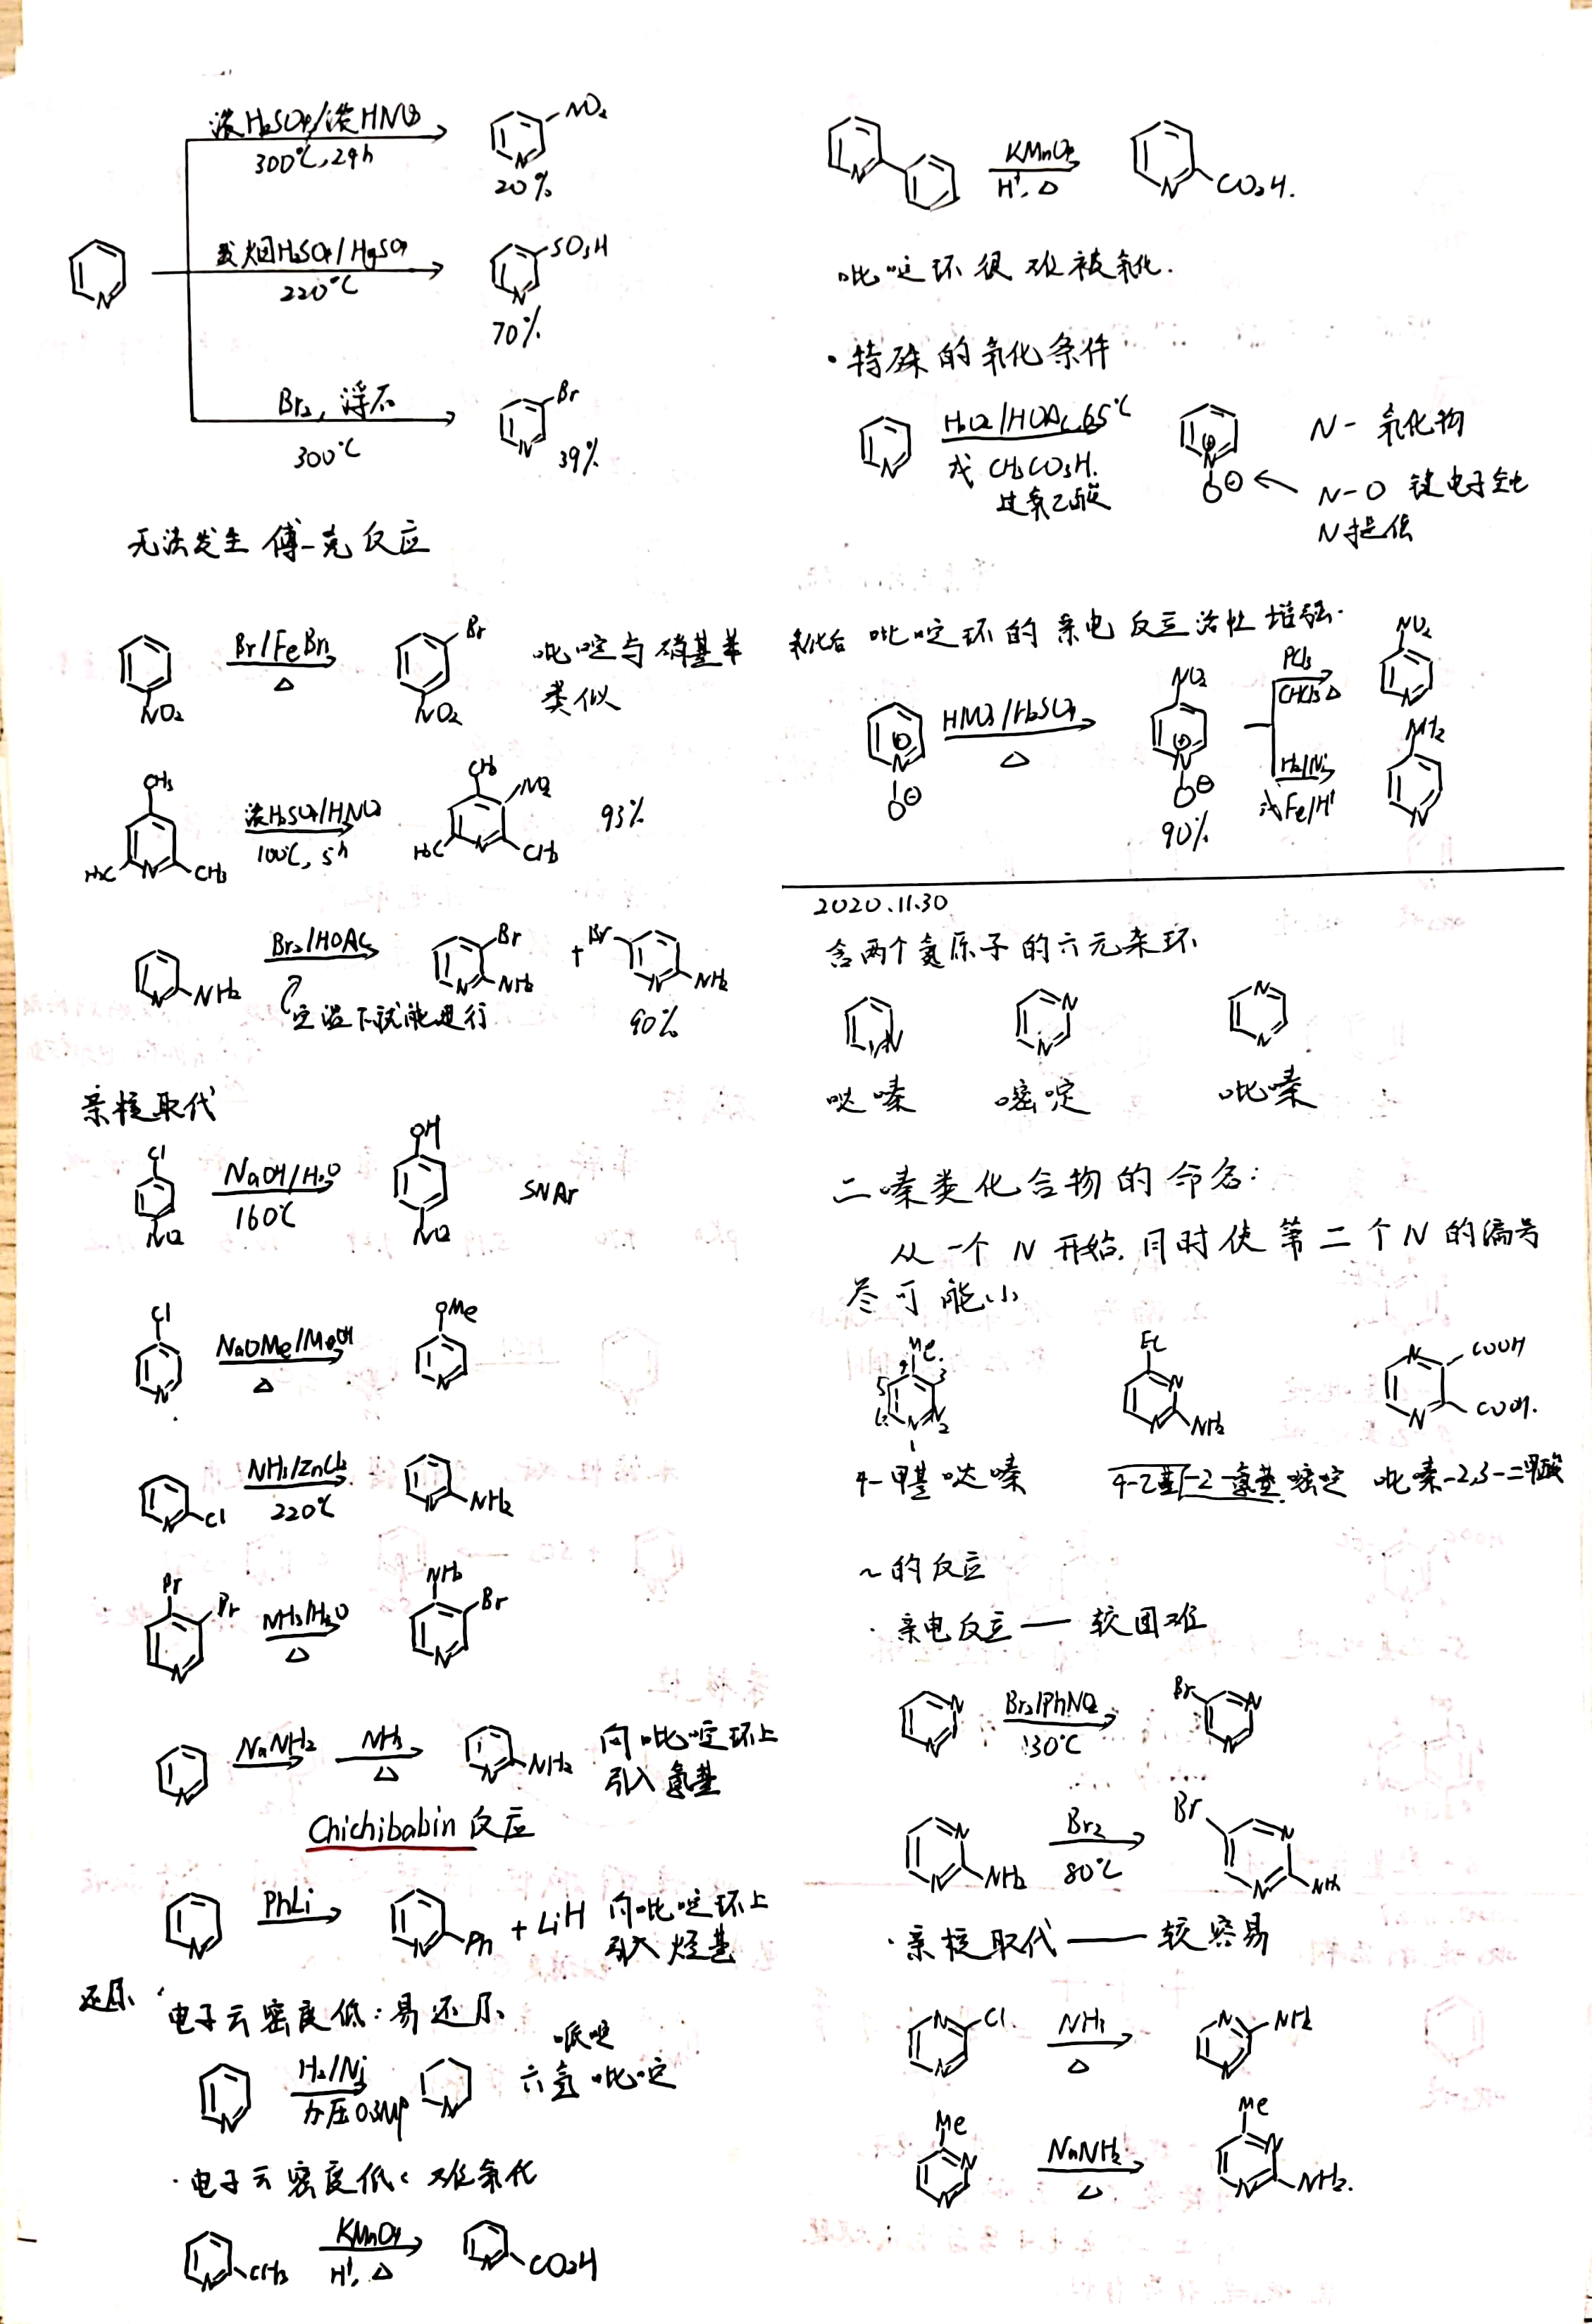 浓H₂SO₄/浓HNO₃
300℃, 24h
NO₂
N
20%
发烟H₂SO₄/HgSO₄
220℃
SO₃H
N
70%
N
Br₂, 浮石
300℃
Br
N
39%
无法发生 傅-克 反应
Br/FeBr₃
△
NO₂
Br
NO₂
吡啶与硝基苯
类似
CH₃
H₃C N CH₃
浓H₂SO₄/HNO₃
100℃, 5h
CH₃
NO₂
H₃C N CH₃
93%
N NH₂
Br₂/HOAc
室温下就能进行
Br
N NH₂
+
Br
N NH₂
90%
亲核取代
Cl
NO₂
NaOH/H₂O
160℃
OH
NO₂
SNAr
Cl
N
NaOMe/MeOH
△
OMe
N
N Cl
NH₃/ZnCl₂
220℃
N NH₂
Br
Br
N
NH₃/H₂O
△
NH₂
Br
N
N
NaNH₂
NH₃
△
N NH₂
向吡啶环上
引入氨基
Chichibabin 反应
N
PhLi
N Ph + LiH
向吡啶环上
引入烃基
还原 · 电子云密度低: 易还原
N
H₂/Ni
加压0.3MP
N
哌啶
六氢吡啶
· 电子云密度低: 难氧化
N CH₃
KMnO₄
H⁺, △
N CO₂H
N
KMnO₄
H⁺, △
N CO₂H.
吡啶环很难被氧化.
· 特殊的氧化条件
N
H₂O₂/HOAc, 65℃
或 CH₃CO₃H.
过氧乙酸
N
⊕
O⊖
N- 氧化物
N-O 键电子全由
N提供
氧化后 吡啶环的亲电反应活性增强.
⊕
N
O⊖
HNO₃/H₂SO₄
△
NO₂
⊕
N
O⊖
90%
PCl₃
CHCl₃ △
NO₂
N
H₂/Ni
或Fe/H⁺
NH₂
N
2020.11.30
含两个氮原子的六元杂环
N N
N N
N N
哒嗪 嘧啶 吡嗪
二嗪类化合物的命名:
从一个N开始, 同时使第二个N的编号
尽可能小
Me.
4 3
5
6 N N 2
1
4-甲基哒嗪
Et
N
N NH₂
4-乙基-2-氨基嘧啶
N COOH
N COOH.
吡嗪-2,3-二甲酸
~的反应
· 亲电反应 — 较困难
N
N
Br₂/PhNO₂
130℃
Br N
N
N
N NH₂
Br₂
80℃
Br
N
N NH₂
· 亲核取代 — 较容易
N Cl.
N
NH₃
△
N NH₂
N
Me
N
N
NaNH₂
△
Me
N
N NH₂.